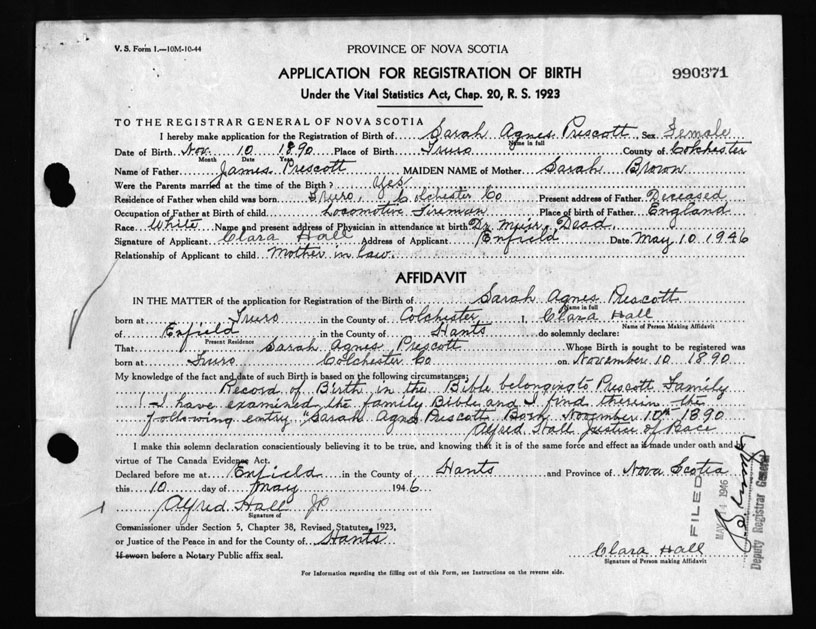 V. S. Form 1.—10M-10-44
PROVINCE OF NOVA SCOTIA
APPLICATION FOR REGISTRATION OF BIRTH
990371
Under the Vital Statistics Act, Chap. 20, R. S. 1923
TO THE REGISTRAR GENERAL OF NOVA SCOTIA
I hereby make application for the Registration of Birth of Sarah Agnes Prescott Sex Female
Name in full
Date of Birth Nov. 10 1890 Place of Birth Truro County of Colchester
Month Date Year
Name of Father James Prescott MAIDEN NAME of Mother Sarah Brown
Were the Parents married at the time of the Birth? Yes
Residence of Father when child was born Truro, Colchester Co Present address of Father Deceased
Occupation of Father at Birth of child Locomotive Fireman Place of birth of Father England
Race White Name and present address of Physician in attendance at birth Dr Muir, Dead
Signature of Applicant Clara Hall Address of Applicant Enfield Date May 10 1946
Relationship of Applicant to child Mother in law
AFFIDAVIT
IN THE MATTER of the application for Registration of the Birth of Sarah Agnes Prescott
Name in full
born at Truro in the County of Colchester I, Clara Hall
Name of Person Making Affidavit
of Enfield in the County of Hants do solemnly declare:
Present Residence
That Sarah Agnes Prescott Whose Birth is sought to be registered was
born at Truro Colchester Co on November 10 1890
My knowledge of the fact and date of such Birth is based on the following circumstances:
Record of Birth in the Bible belonging to Prescott Family
I have examined the family Bible and I find therein the
following entry "Sarah Agnes Prescott Born November 10th 1890
Alfred Hall Justice of Peace
I make this solemn declaration conscientiously believing it to be true, and knowing that it is of the same force and effect as if made under oath and by
virtue of The Canada Evidence Act.
Declared before me at Enfield in the County of Hants and Province of Nova Scotia
this 10 day of May 1946
Alfred Hall JP
Signature of
Commissioner under Section 5, Chapter 38, Revised Statutes, 1923,
or Justice of the Peace in and for the County of Hants
If sworn before a Notary Public affix seal.
Clara Hall
Signature of Person making Affidavit
FILED
MAY 14 1946
Deputy Registrar General
For Information regarding the filling out of this Form, see Instructions on the reverse side.